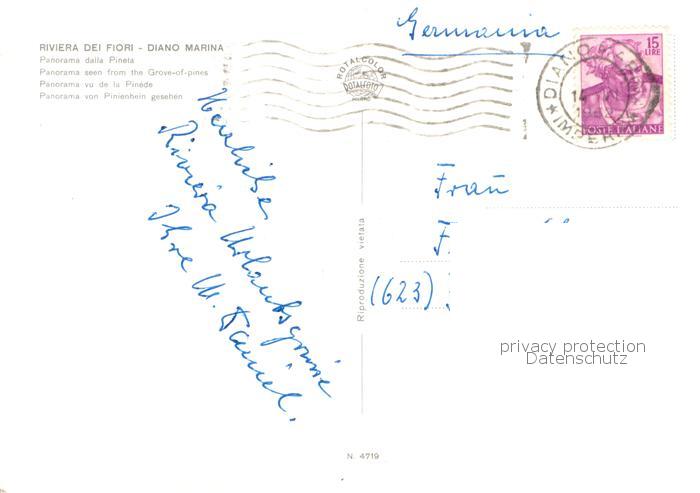 Germania
RIVIERA DEI FIORI - DIANO MARINA
Panorama dalla Pineta
Panorama seen from the Grove-of-pines
Panorama vu de la Pinède
Panorama von Pinienhein gesehen
ROTALCOLOR
ROTALFOTO
MILANO
15
LIRE
POSTE ITALIANE
DIANO
IMPERIA
14
Herzliche
Riviera Urlaubsgrüsse
Ihre M. Daniel.
Frau
F.
(623)
Riproduzione vietata
privacy protection
Datenschutz
N. 4719